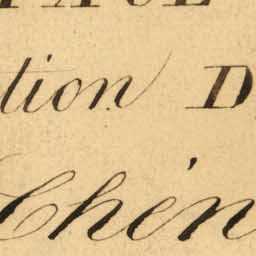 tion D
Chén